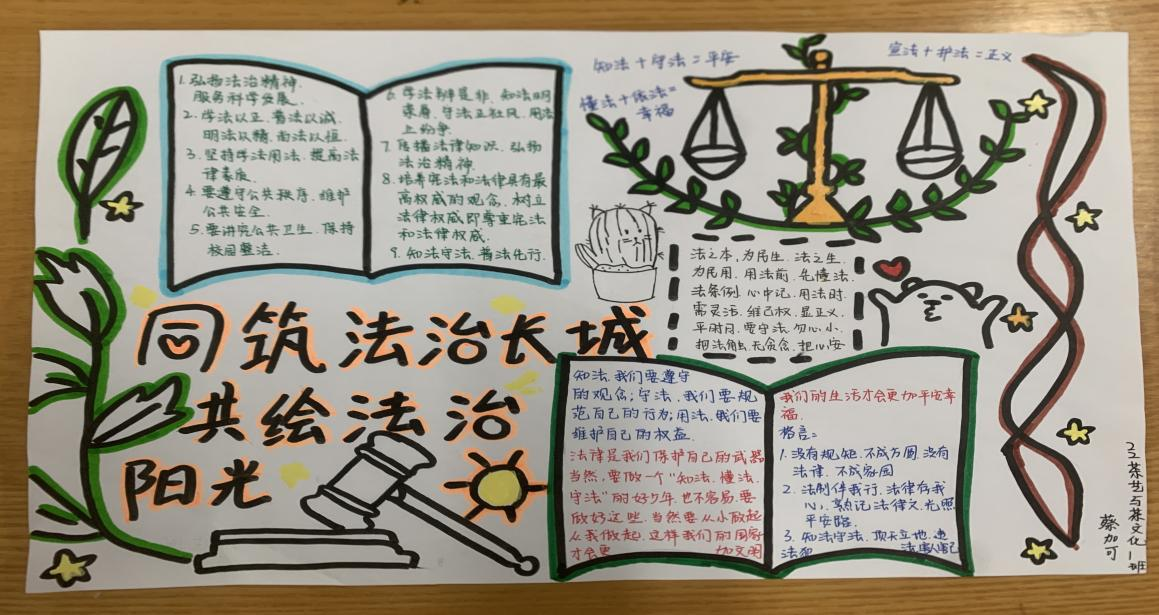 1. 弘扬法治精神.
服务科学发展.
2. 学法以正. 普法以诚.
明法以精. 尚法以恒.
3. 坚持学法用法. 提高法
律素质.
4. 要遵守公共秩序. 维护
公共安全.
5. 要讲究公共卫生. 保持
校园整洁.
6. 学法辨是非. 知法明
荣辱. 守法正社风. 用法
止纷争.
7. 传播法律知识. 弘扬
法治精神.
8. 培养宪法和法律具有最
高权威的观念. 树立
法律权威即尊重宪法
和法律权威.
9. 知法守法. 普法先行.
知法+守法=平安
懂法+依法=
幸福
宣法+护法=正义
法之本, 为民生. 法之生.
为民用. 用法前. 先懂法.
法条例. 心中记. 用法时.
需灵活. 维己权. 显正义.
平时日. 要守法. 勿心小.
把法触. 无贪念. 把心安
同筑法治长城
共绘法治
阳光
知法. 我们要遵守
的观念; 守法. 我们要规
范自己的行为; 用法. 我们要
维护自己的权益.
法律是我们保护自己的武器
当然, 要做一个"知法. 懂法.
守法"的好少年. 也不容易. 要
做好这些. 当然要从小做起
从我做起. 这样我们的国家
才会更 加文明
我们的生活才会更加平安幸
福.
格言:
1. 没有规矩. 不成方圆. 没有
法律. 不成家园
2. 法制伴我行. 法律存我
心. 熟记法律文. 光照
平安路.
3. 知法守法. 顶天立地. 违
法犯
茶艺与茶文化1班
蔡加可